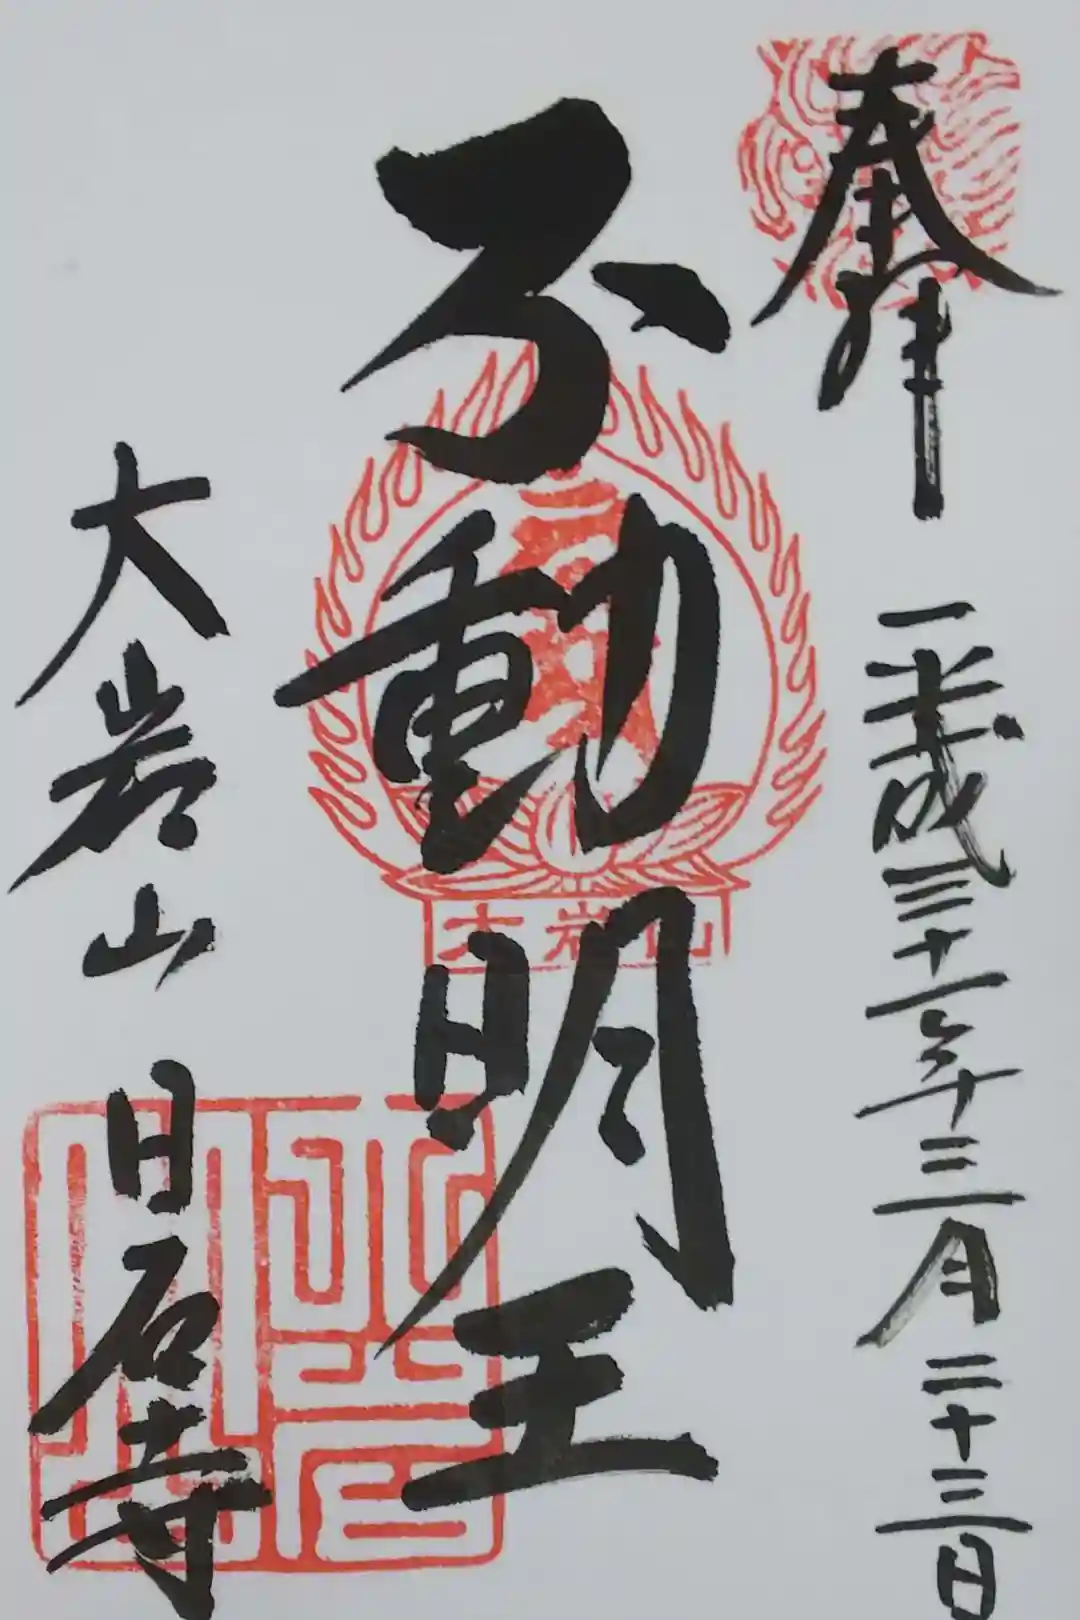 奉拝
平成三十一年三月二十三日
不動明王
大岩山
大岩山 日石寺